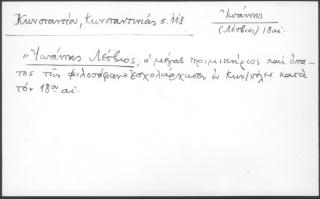 Κωνσταντίου, Κωνσταντινιάς σ. 113
Ἰωάννης
(Λέσβιος) 18 αἰ.
"Ἰωάννης Λέσβιος, ὁ μέγας πριμικήριος καί ὕπα-
τος τῶν φιλοσόφων ἐσχολάρχησεν ἐν Κων/πόλει κατά
τόν 18ον αἰ.